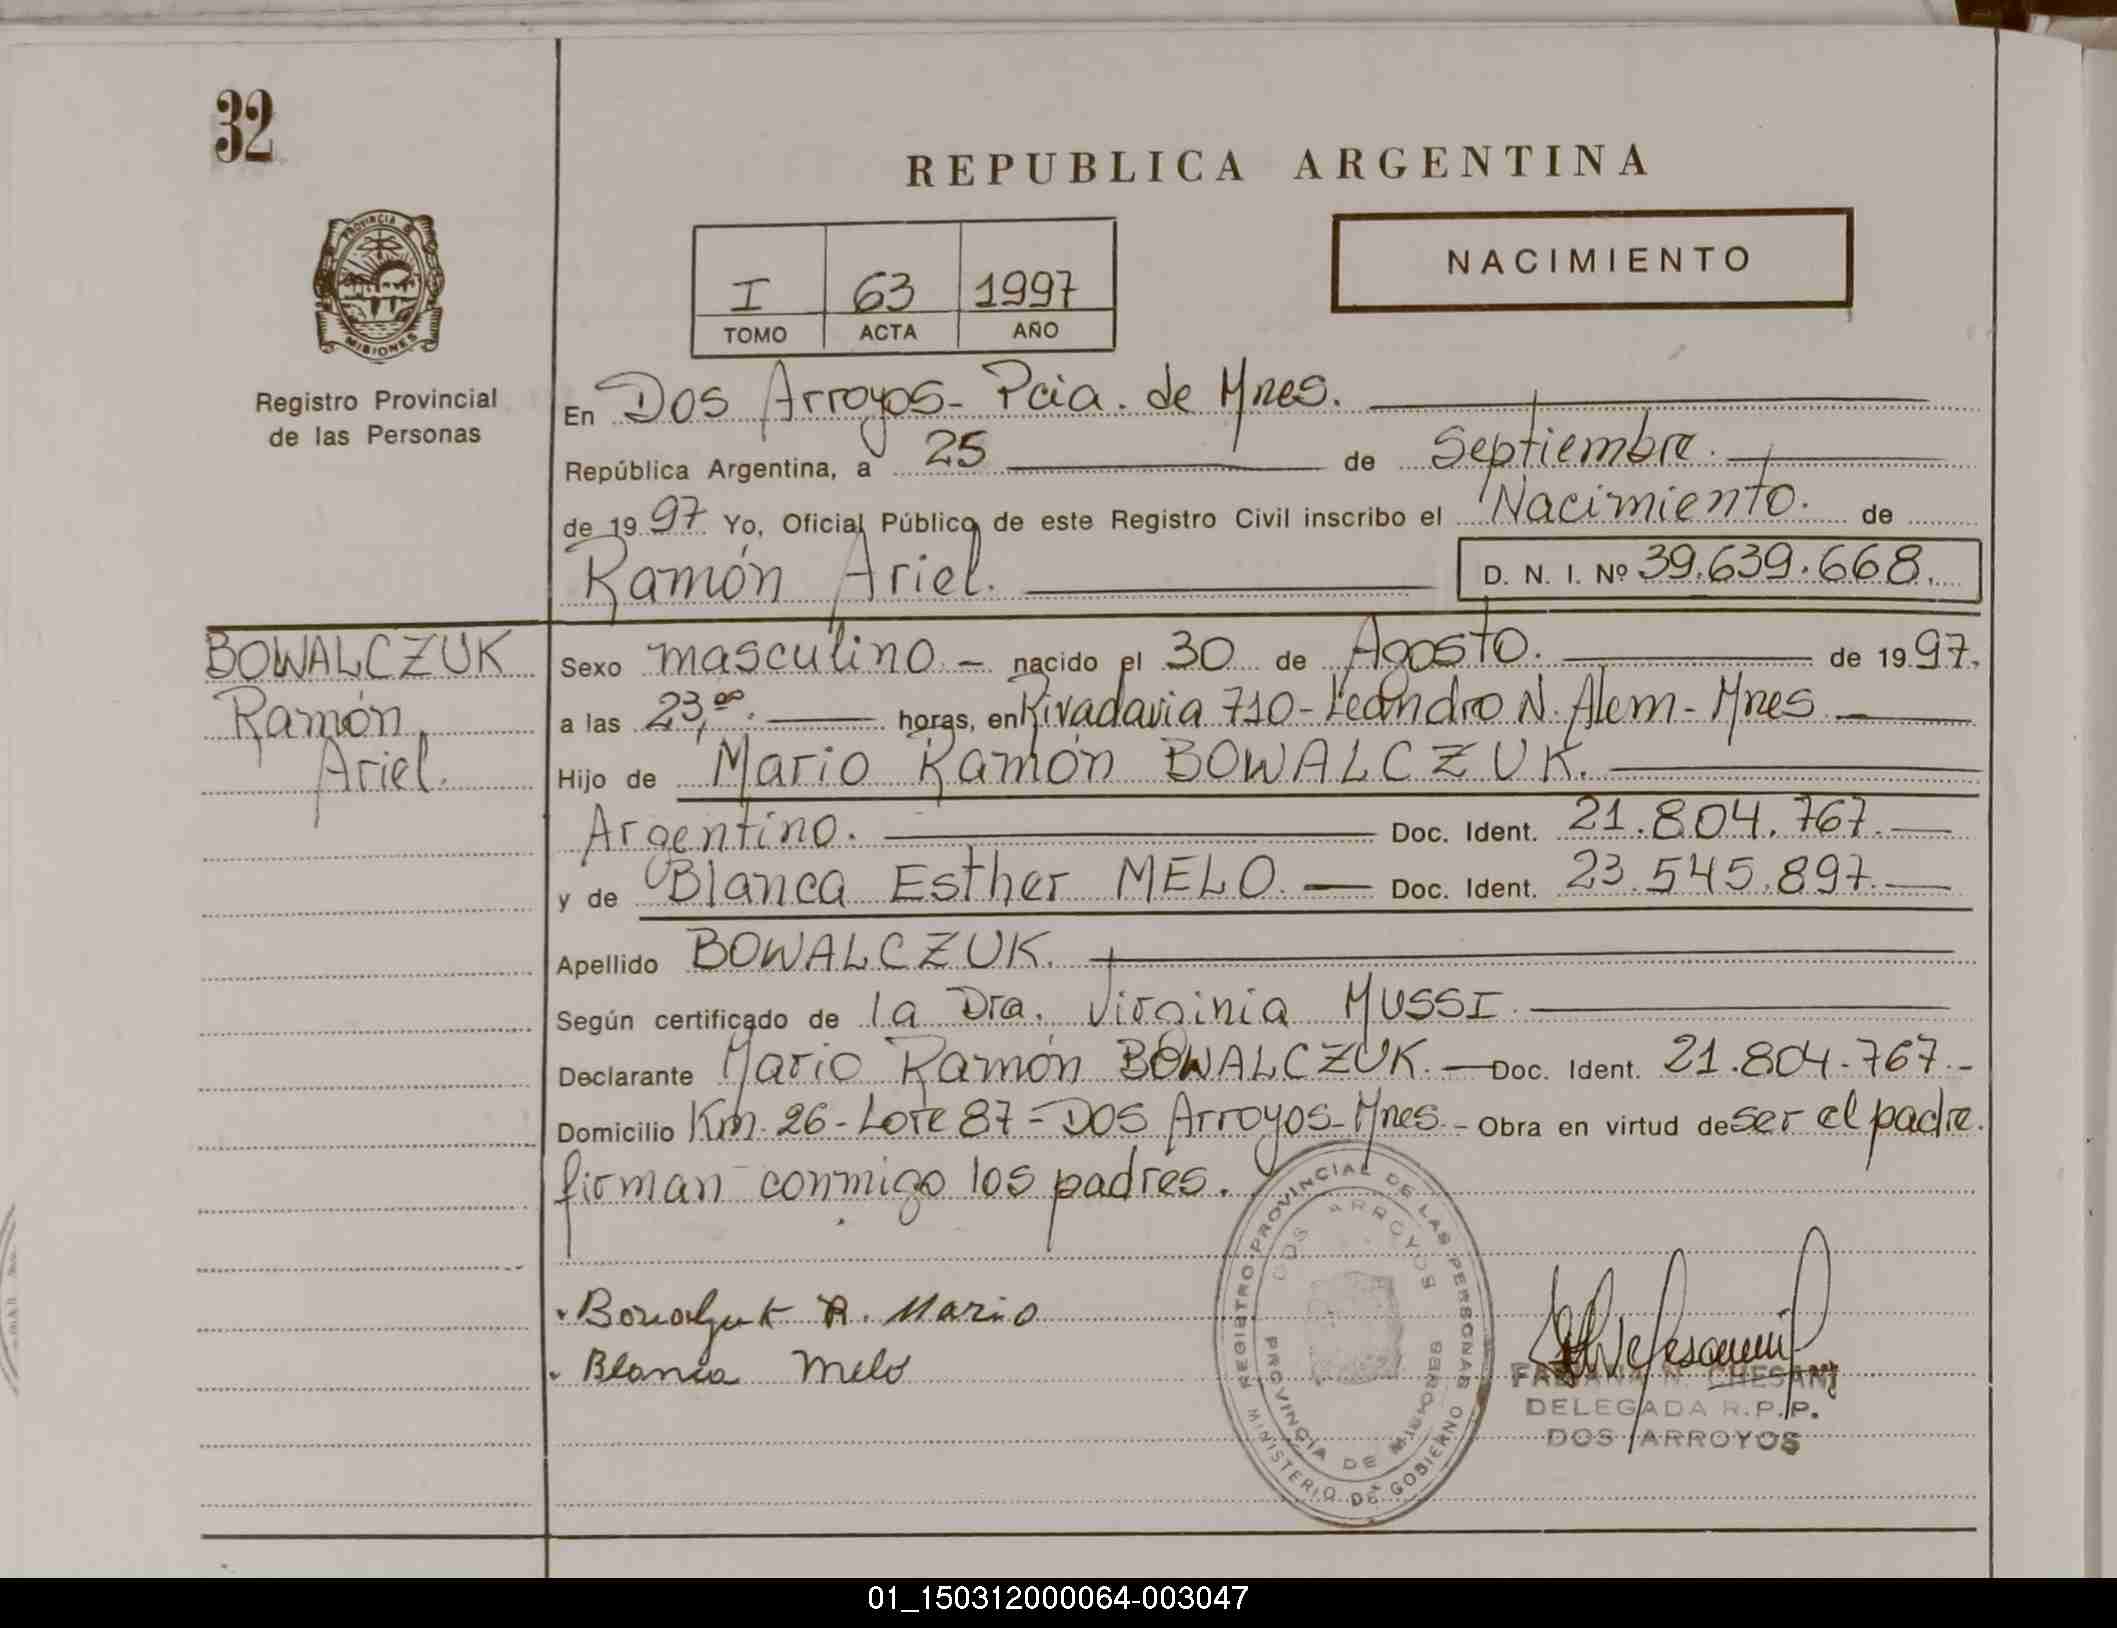 32
REPUBLICA ARGENTINA
PROVINCIA
MISIONES
Registro Provincial
de las Personas
I 63 1997
TOMO ACTA AÑO
NACIMIENTO
En Dos Arroyos- Pcia. de Mnes.
República Argentina, a 25 de Septiembre.
de 1997. Yo, Oficial Público de este Registro Civil inscribo el Nacimiento. de
Ramón Ariel. D. N. I. Nº 39.639.668.
BOWALCZUK
Ramón
Ariel.
Sexo masculino - nacido el 30 de Agosto. de 1997.
a las 23,00. horas, en Rivadavia 710-Leandro N. Alem- Mnes
Hijo de Mario Ramón BOWALCZUK.
Argentino. Doc. Ident. 21.804.767.
y de Blanca Esther MELO. Doc. Ident. 23.545.897.
Apellido BOWALCZUK.
Según certificado de la Dra. Virginia MUSSI
Declarante Mario Ramón BOWALCZUK. Doc. Ident. 21.804.767.-
Domicilio Km. 26-Lote 87=Dos Arroyos-Mnes.- Obra en virtud de ser el padre.
firman conmigo los padres.
REGISTRO PROVINCIAL DE LAS PERSONAS
DOS ARROYOS
PROVINCIA DE MISIONES
MINISTERIO DE GOBIERNO
R. Mario
Blanca Melo
FABIANA N. CHESANI
DELEGADA R.P.P.
DOS ARROYOS
01_150312000064-003047